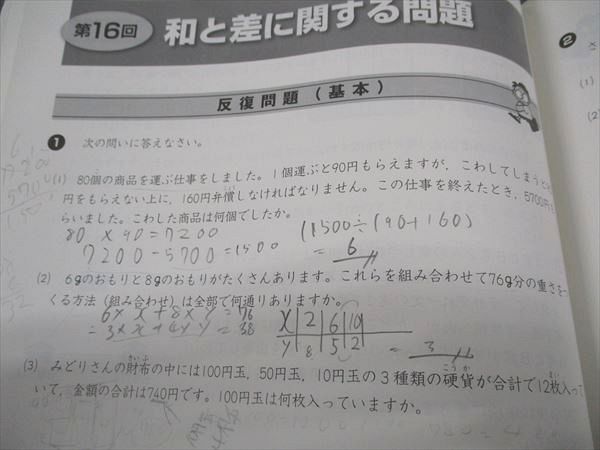 第16回 和と差に関する問題
反復問題(基本)
1 次の問いに答えなさい。
(1) 80個の商品を運ぶ仕事をしました。1個運ぶと90円もらえますが、こわしてしまうと
円をもらえない上に、160円弁償しなければなりません。この仕事を終えたとき、5700円
らいました。こわした商品は何個でしたか。
80 × 90 = 7200
(1500÷(90+160)
7200-5700=1500
= 6
(2) 6gのおもりと8gのおもりがたくさんあります。これらを組み合わせて76g分の重さを
くる方法(組み合わせ)は全部で何通りありますか。
6×x+8×y=76
=3×x+4×y=38
x 2 6 10
y 8 5 2
= 3
(3) みどりさんの財布の中には100円玉,50円玉,10円玉の3種類の硬貨が合計で12枚入っ
て、金額の合計は740円です。100円玉は何枚入っていますか。
2
(1)
(2)